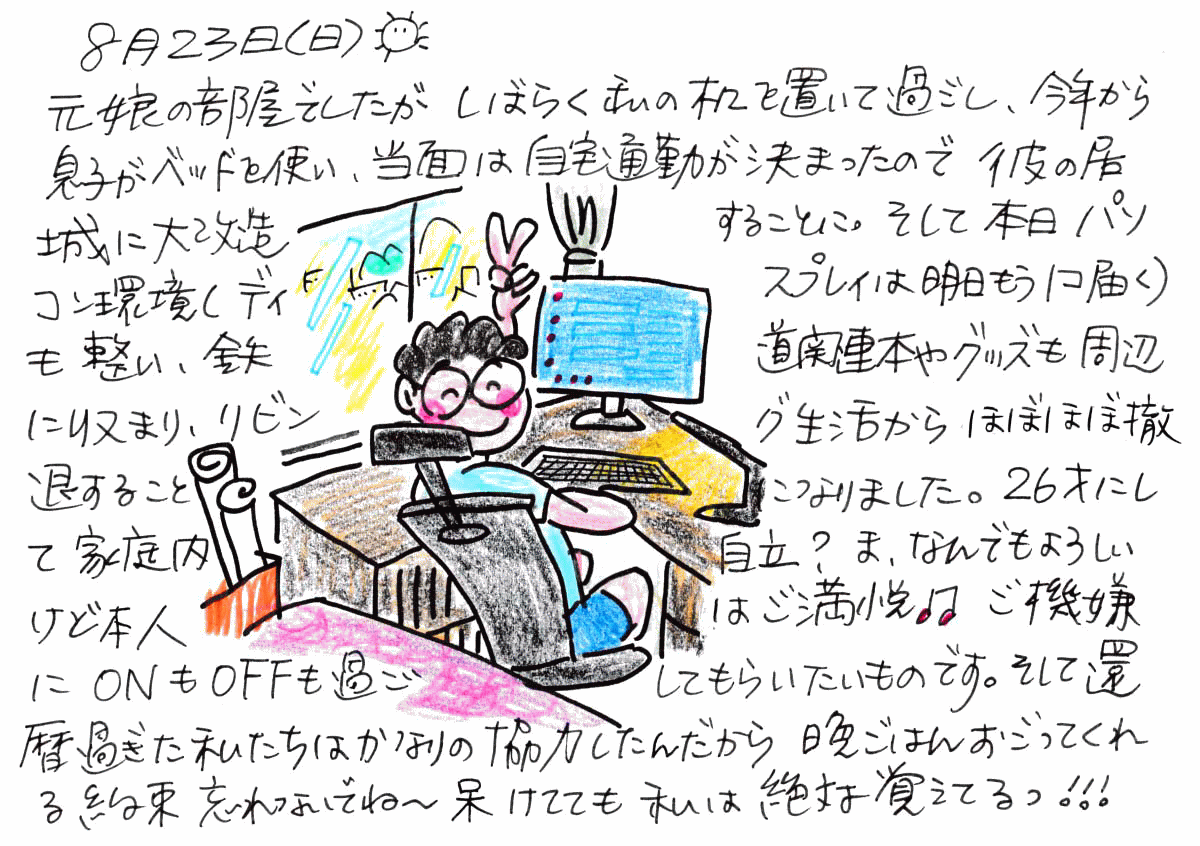 8月23日(日)
元娘の部屋でしたが しばらく私の机を置いて過ごし、今年から
息子がベッドを使い、当面は自宅通勤が決まったので 彼の居
城に大改造 することに。そして本日 パソ
コン環境(ディ スプレイは明日もう1コ届く)
も整い、鉄 道関連本やグッズも周辺
に収まり、リビン グ生活から ほぼほぼ撤
退すること になりました。26才にし
て家庭内 自立?ま、なんでもよろしい
けど本人 はご満悦♪♫ ご機嫌
に ONもOFFも過ご してもらいたいものです。そして還
暦過ぎた私たちはかなりの協力したんだから 晩ごはんおごってくれ
る約束 忘れないでね〜 呆けてても 私は 絶対覚えてるっ!!!